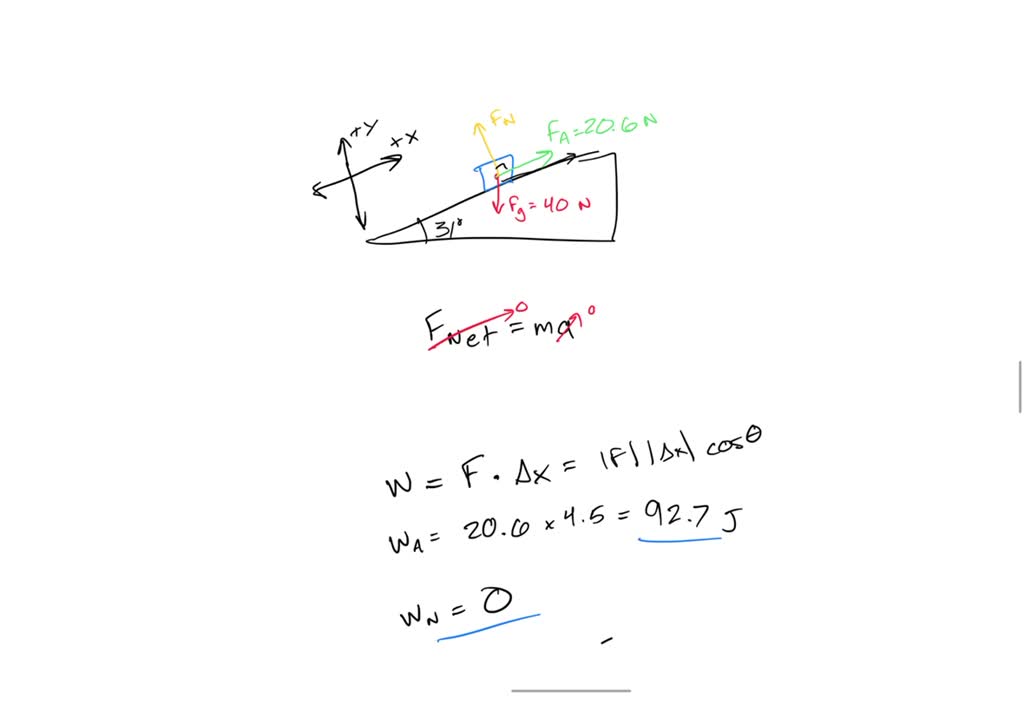 +Y
+X
FN
FA=20.6 N
Fg=40 N
31°
FNet = ma
0
0
W = F · Δx = |F||Δx| cosθ
WA = 20.6 × 4.5 = 92.7 J
WN = 0